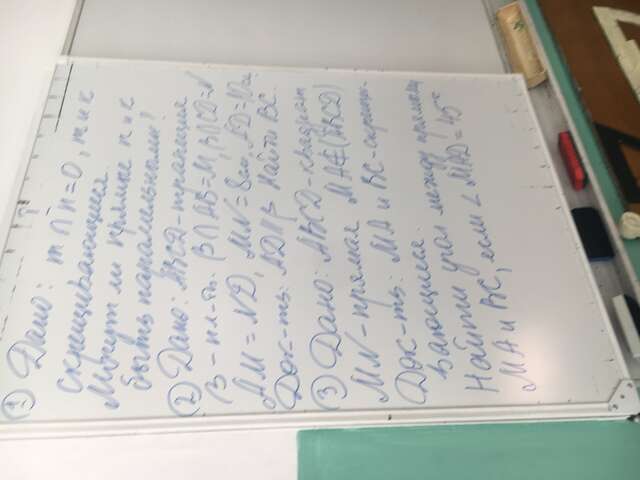 I
① Дано: m ∩ n = O, m и к
скрещивающиеся.
Могут ли прямые n и к
быть параллельными?
② Дано: ABCD - трапеция
β - пл-ть. β ∩ AB = M, β ∩ CD = N
AM = ND, MN = 8см, AD = 10см
Док-ть: AD || β Найти BC.
③ Дано: ABCD - квадрат
MN - прямая MA ⊄ (ABCD)
Док-ть: MA и BC - скрещи-
вающиеся.
Найти угол между прямыми
MA и BC, если ∠ MAD = 45°